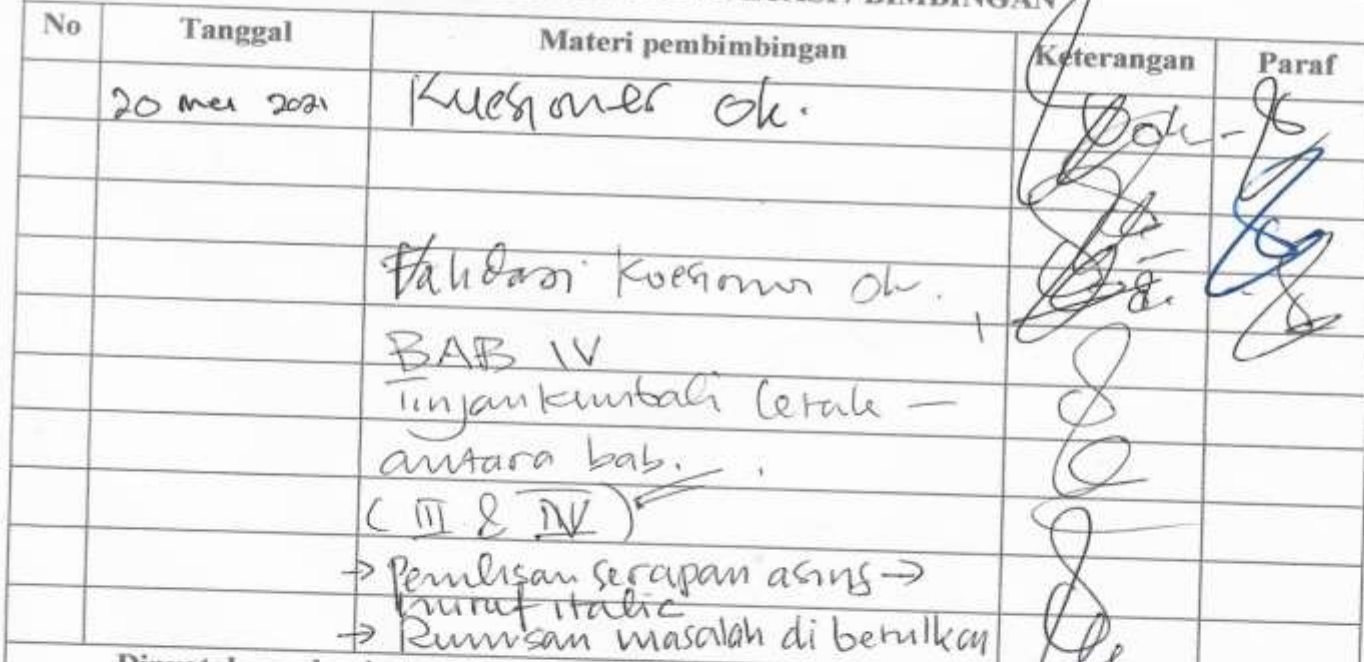 BIMBINGAN
No Tanggal Materi pembimbingan Keterangan Paraf
20 mei 2021 Kuesioner ok. ok
Validasi Kuesioner ok.
BAB IV
Tinjau kembali
antara bab.
( III & IV )
→ Penulisan serapan asing →
huruf italic
→ Rumusan masalah di betulkan